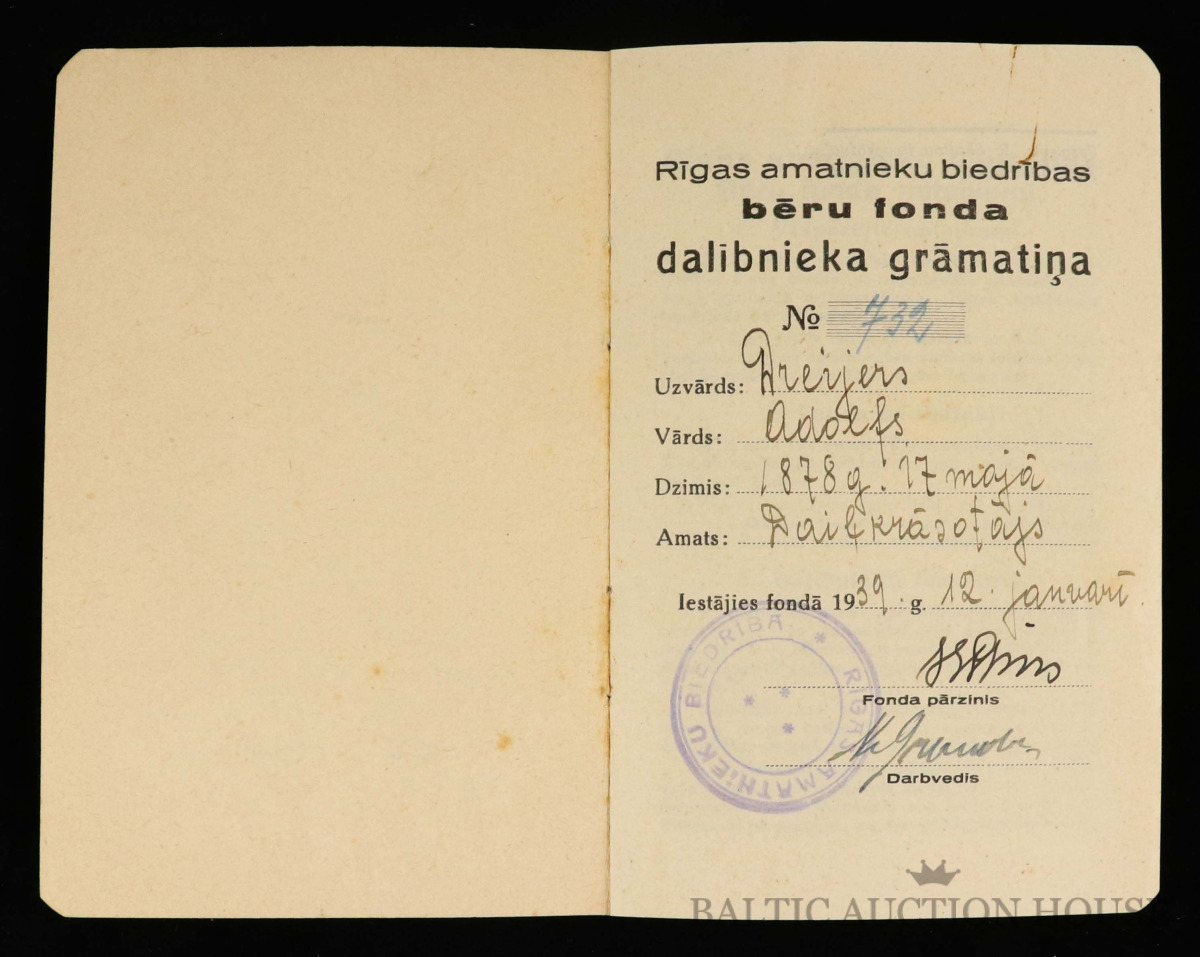 Rīgas amatnieku biedrības
bēru fonda
dalībnieka grāmatiņa
№ 732
Uzvārds: Dreijers
Vārds: Adolfs
Dzimis: 1878 g. 17 majā
Amats: Daiļkrāsotājs
Iestājies fondā 1939. g. 12. janvarī
Fonda pārzinis
Darbvedis
RĪGAS AMATNIEKU BIEDRĪBA
BALTIC AUCTION HOUSE